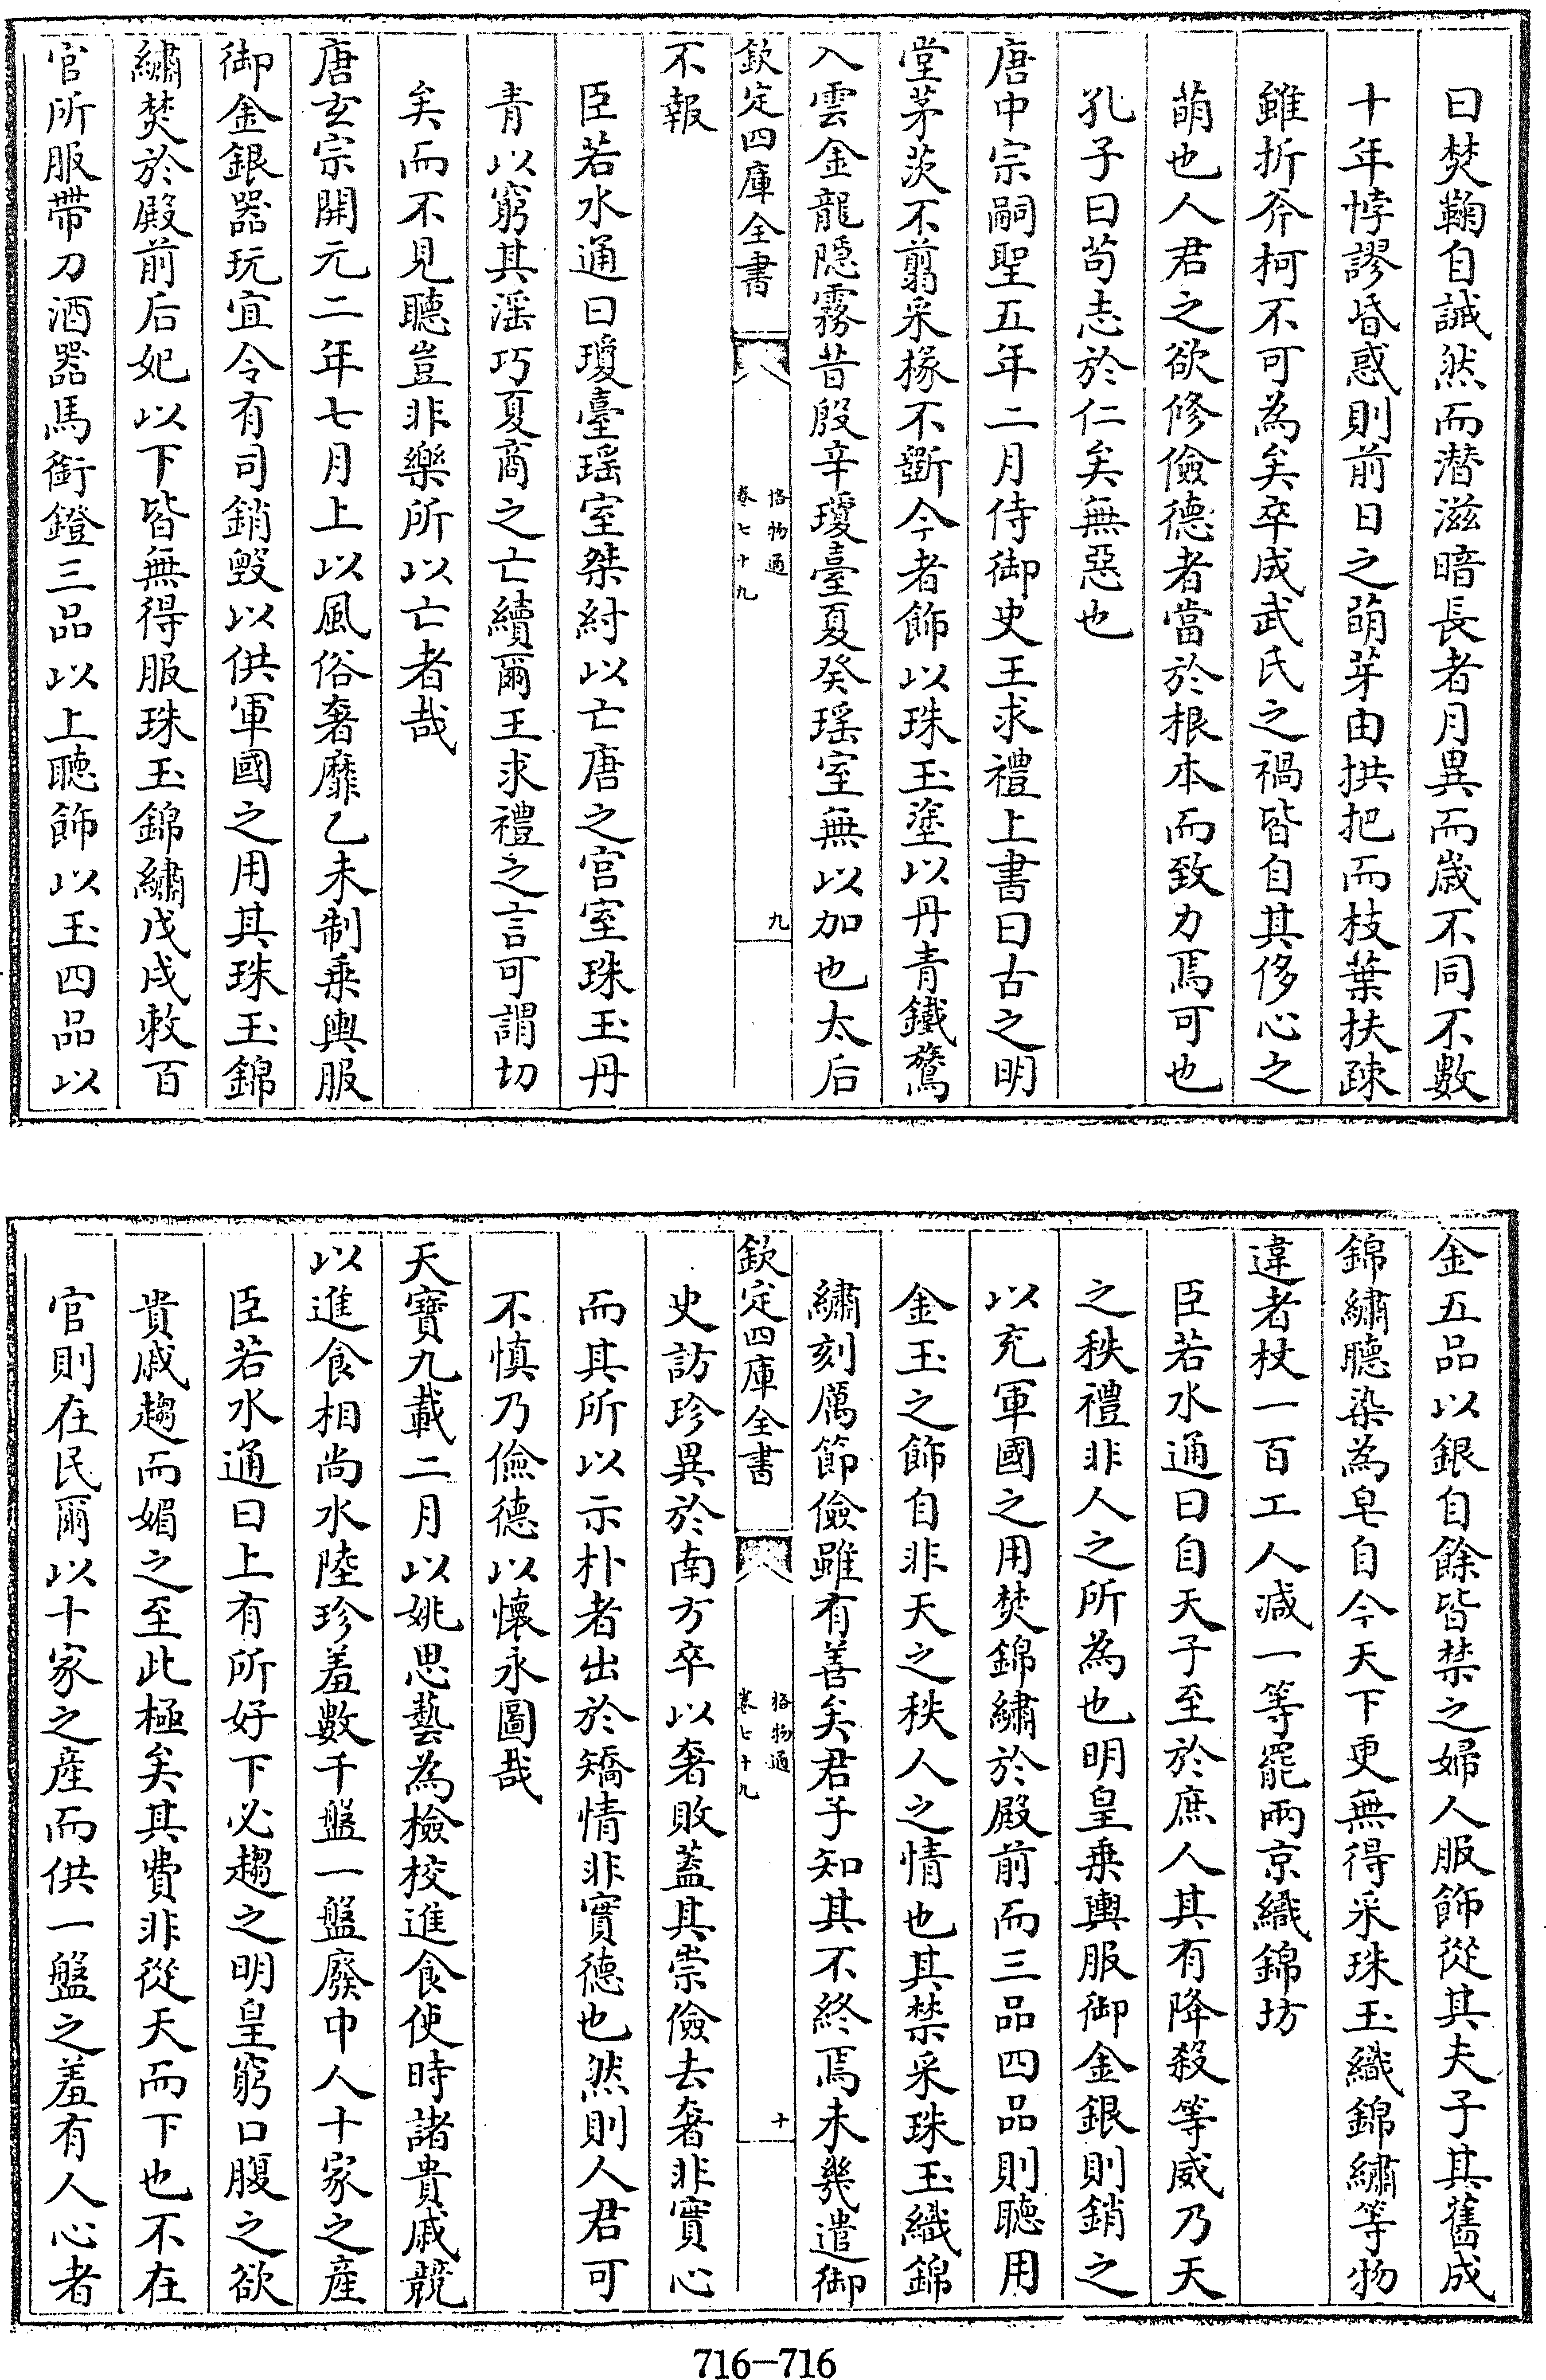 曰焚鞠自誡然而潜滋暗長者月異而歳不同不數
十年悖謬昏惑則前日之萌芽由拱把而枝葉扶疎
雖折斧柯不可為矣卒成武氏之禍皆自其侈心之
萌也人君之欲修儉德者當於根本而致力焉可也
孔子曰苟志於仁矣無惡也
唐中宗嗣聖五年二月侍御史王求禮上書曰古之明
堂茅茨不翦采椽不斲今者飾以珠玉塗以丹青鐵鷟
入雲金龍隠霧昔殷辛瓊臺夏癸瑶室無以加也太后
欽定四庫全書
格物通
卷七十九
九
不報
臣若水通曰瓊臺瑶室桀紂以亡唐之宫室珠玉丹
青以窮其滛巧夏商之亡續爾王求禮之言可謂切
矣而不見聽豈非樂所以亡者哉
唐玄宗開元二年七月上以風俗奢靡乙未制乗輿服
御金銀器玩宜令有司銷毁以供軍國之用其珠玉錦
繡焚於殿前后妃以下皆無得服珠玉錦繡戊戌敕百
官所服帶刀酒器馬銜鐙三品以上聽飾以玉四品以
金五品以銀自餘皆禁之婦人服飾從其夫子其舊成
錦繡聽染為皂自今天下更無得采珠玉織錦繡等物
違者杖一百工人减一等罷兩京織錦坊
臣若水通曰自天子至於庶人其有降殺等威乃天
之秩禮非人之所為也明皇乗輿服御金銀則銷之
以充軍國之用焚錦繡於殿前而三品四品則聽用
金玉之飾自非天之秩人之情也其禁采珠玉織錦
繡刻厲節儉雖有善矣君子知其不終焉未幾遣御
欽定四庫全書
格物通
卷七十九
十
史訪珍異於南方卒以奢敗葢其崇儉去奢非實心
而其所以示朴者出於矯情非實德也然則人君可
不慎乃儉德以懷永圖哉
天寳九載二月以姚思藝為檢校進食使時諸貴戚競
以進食相尚水陸珍羞數千盤一盤廢中人十家之産
臣若水通曰上有所好下必趨之明皇窮口腹之欲
貴戚趨而媚之至此極矣其費非從天而下也不在
官則在民爾以十家之産而供一盤之羞有人心者
716-716